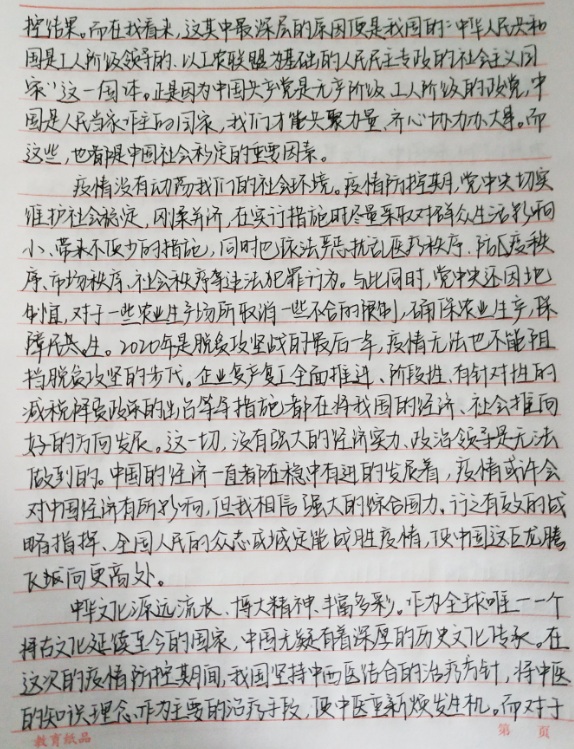 控结果。而在我看来，这其中最深层的原因便是我国的：“中华人民共和
国是工人阶级领导的、以工农联盟为基础的人民民主专政的社会主义国
家”这一国体。正是因为中国共产党是无产阶级、工人阶级的政党，中
国是人民当家作主的国家，我们才能共聚力量、齐心协力办大事。而
这些，也都是中国社会稳定的重要因素。
疫情没有动荡我们的社会环境。疫情防控期，党中央切实
维护社会稳定，刚柔并济，在实行措施时尽量采取对群众生活影响
小、带来不便少的措施，同时也依法严惩扰乱医疗秩序、防疫秩
序、市场秩序、社会秩序等违法犯罪行为。与此同时，党中央还因地
制宜，对于一些农业生产场所取消一些不合的限制，确保农业生产，保
障民生。2020年是脱贫攻坚战的最后一年，疫情无法也不能阻
挡脱贫攻坚的步伐。企业复产复工全面推进、阶段性、有针对性的
减税降费政策的出台等等措施都在将我国的经济、社会推向
好的方向发展。这一切，没有强大的经济实力、政治领导是无法
做到的。中国的经济一直都在稳中有进的发展着，疫情或许会
对中国经济有所影响，但我相信强大的综合国力、行之有效的战
略指挥、全国人民的众志成城定能战胜疫情，使中国这巨龙腾
飞翱向更高处。
中华文化源远流长、博大精神、丰富多彩。作为全球唯一一个
将古文化延续至今的国家，中国无疑有着深厚的历史文化传承。在
这次的疫情防控期间，我国坚持中西医结合的治疗方针，将中医
的知识理念作为主要的治疗手段，使中医重新焕发生机。而对于
教育纸品 第 页